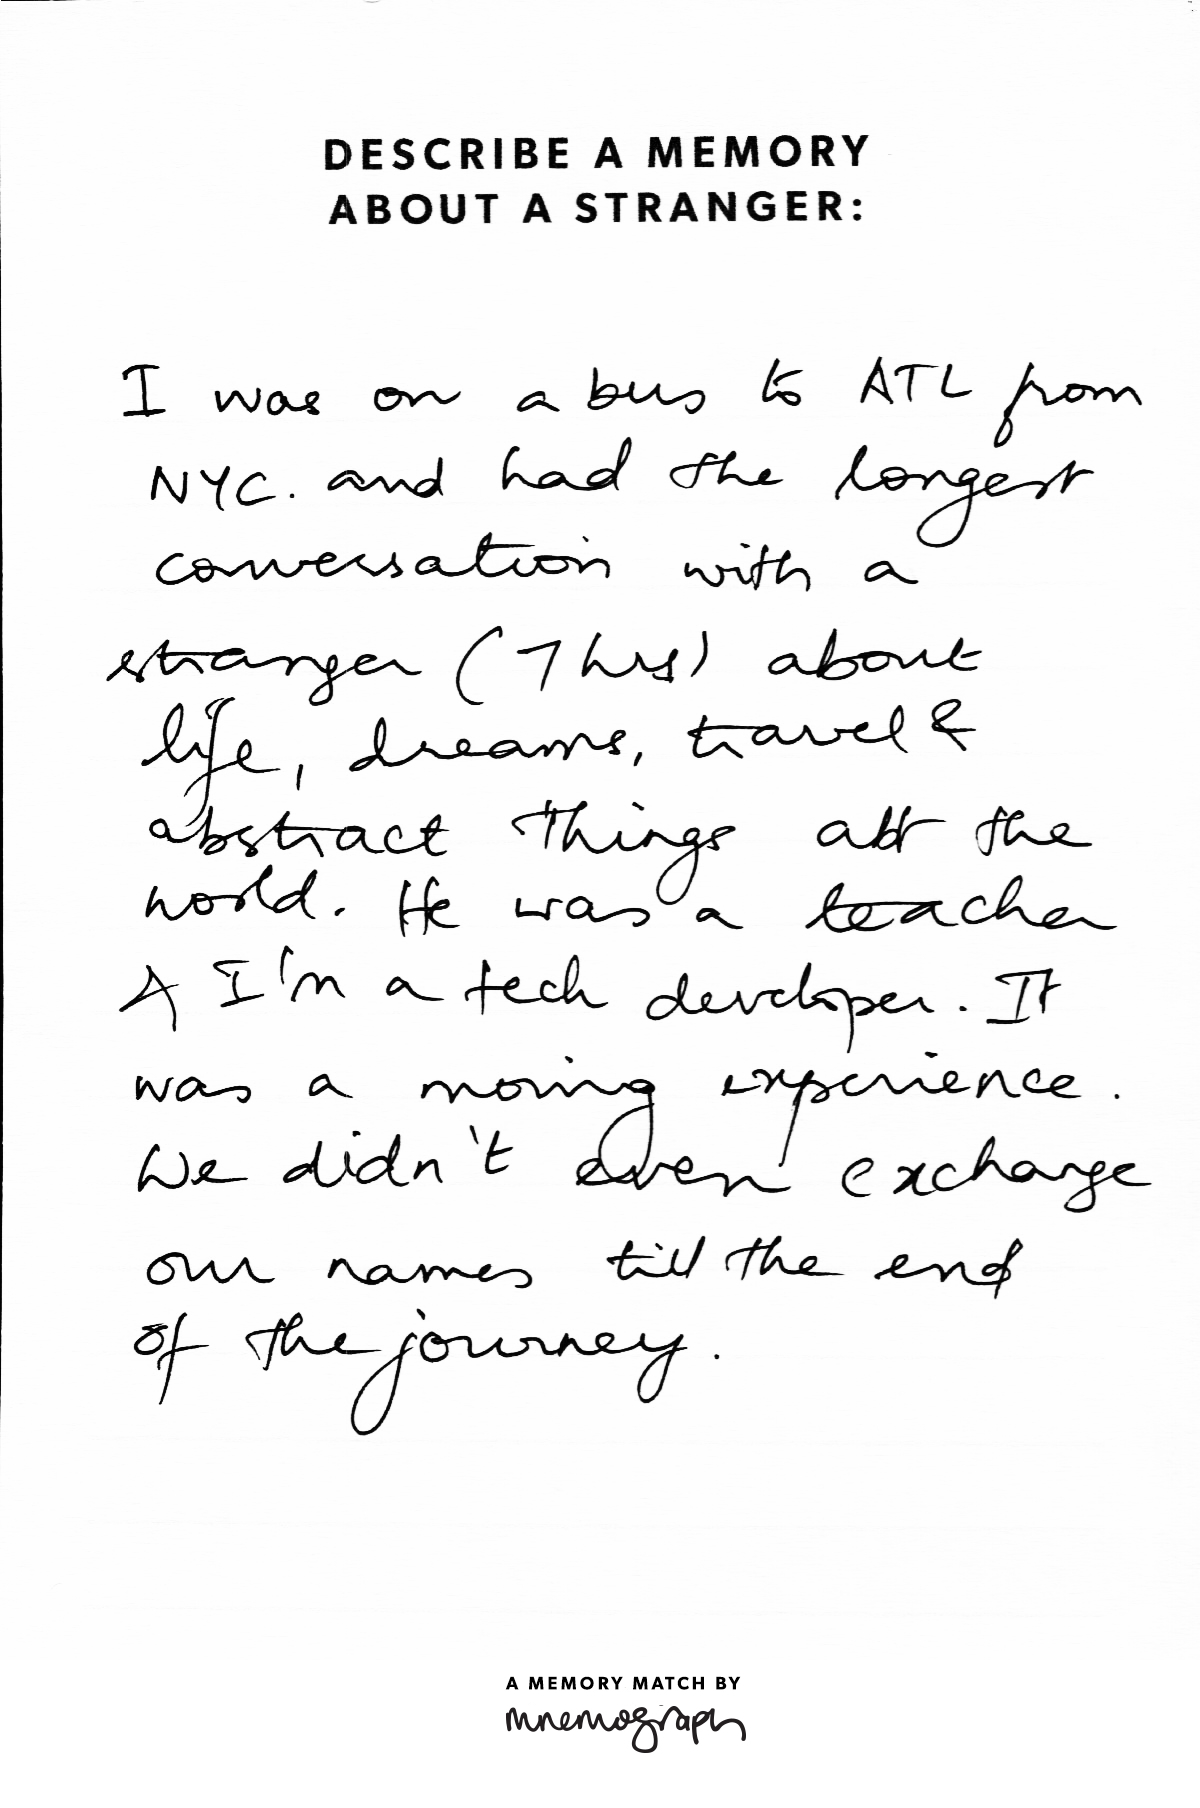 DESCRIBE A MEMORY
ABOUT A STRANGER:
I was on a bus to ATL from
NYC. and had the longest
conversation with a
stranger (7 hrs) about
life, dreams, travel &
abstract things abt the
world. He was a teacher
& I'm a tech developer. It
was a moving experience.
We didn't even exchange
our names till the end
of the journey.
A MEMORY MATCH BY
mnemograph